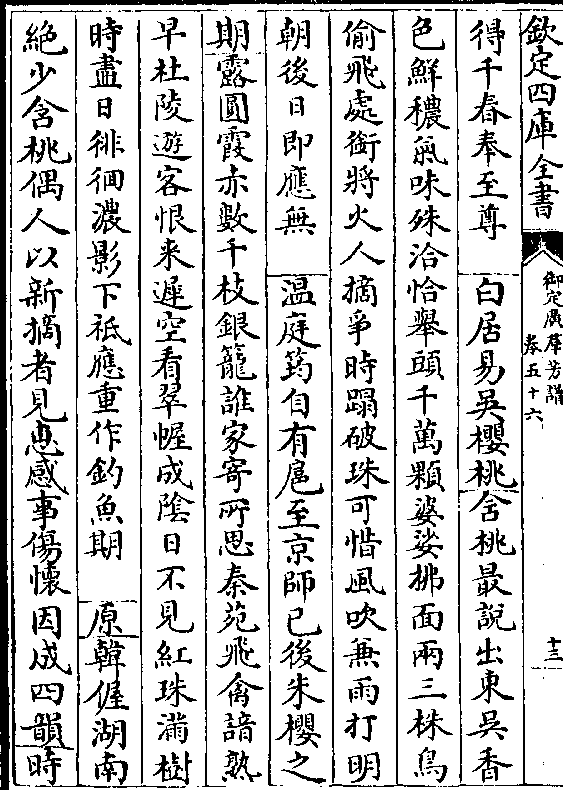 欽定四庫全書
御定廣羣芳譜
卷五十六
十三
得千春奉至尊　白居易吳櫻桃含桃最說出東吳香
色鮮穠氣味殊洽恰舉頭千萬顆婆娑拂面兩三株鳥
偷飛處銜將火人摘爭時蹋破珠可惜風吹兼雨打明
朝後日即應無　溫庭筠自有扈至京師已後朱櫻之
期露圓霞赤數千枝銀籠誰家寄所思秦苑飛禽諳熟
早杜陵遊客恨來遲空看翠幄成陰日不見紅珠滿樹
時盡日徘徊濃影下祇應重作釣魚期　原韓偓湖南
絶少含桃偶人以新摘者見惠感事傷懷因成四韻時